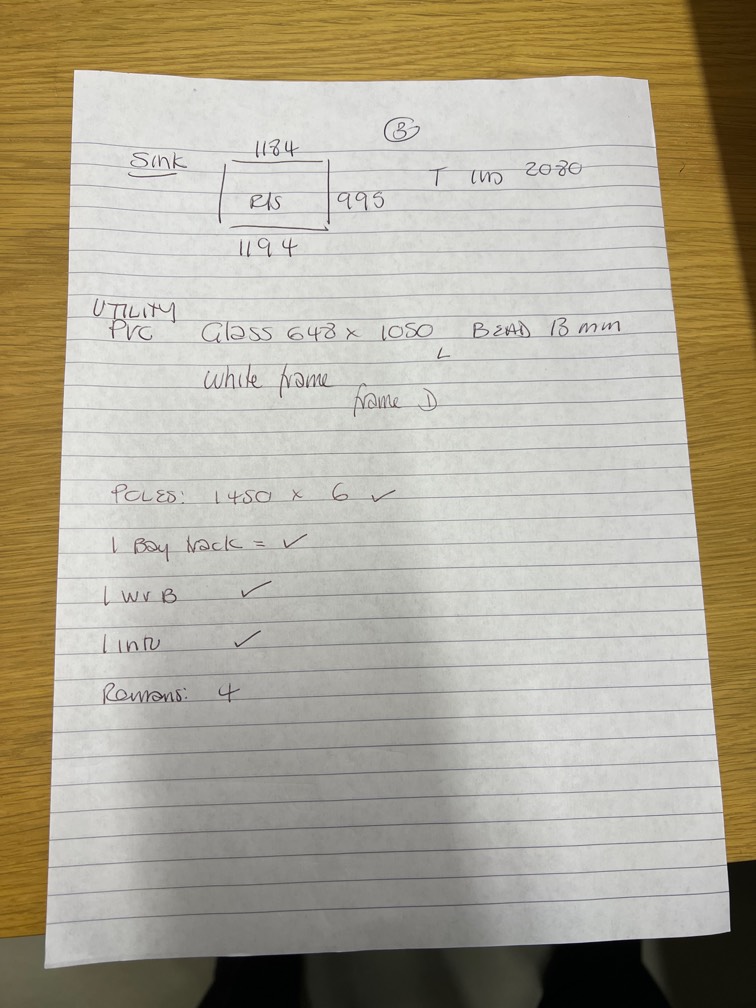 3
Sink 1184
R/S 995 T 2080
1194
UTILITY
PVC Glass 648 x 1050 BEAD 13 mm
L
White frame
frame D
POLES: 1450 x 6 ✓
1 Bay track = ✓
1 WVB ✓
1 ✓
Romans: 4